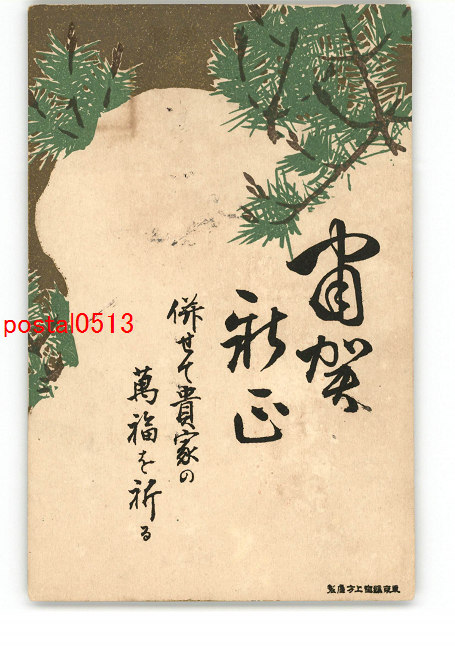 甫賀
新正
併せて貴家の
萬福を祈る
postal0513
東京銀座上方屋製